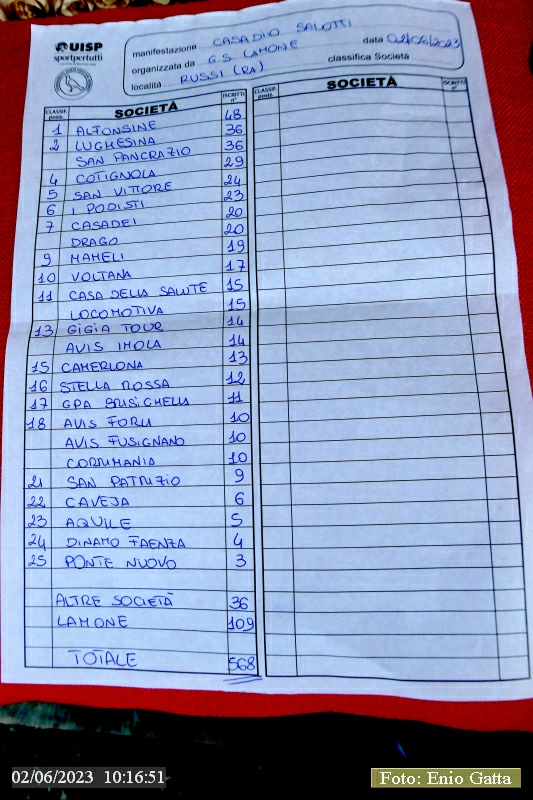 UISP
sportpertutti
manifestazione CASADIO SALOTTI data 02/06/2023
organizzata da G.S. LAMONE classifica Società
località RUSSI (RA)
CLASSIF. poste. SOCIETÀ ISCRITTI n° CLASSIF. poste. SOCIETÀ ISCRITTI n°
1 ALFONSINE 48
2 LUGHESINA 36
SAN PANCRAZIO 36
4 COTIGNOLA 29
5 SAN VITTORE 24
6 I PODISTI 23
7 CASADEI 20
DRAGO 20
9 MAMELI 19
10 VOLTANA 17
11 CASA DELLA SALUTE 15
LOCOMOTIVA 15
13 GIGIA TOUR 14
AVIS IMOLA 14
15 CAMERLONA 13
16 STELLA ROSSA 12
17 GPA BRISIGHELLA 11
18 AVIS FORLI 10
AVIS FUSIGNANO 10
CORRIMANIA 10
21 SAN PATRIZIO 9
22 CAVEJA 6
23 AQUILE 5
24 DINAMO FAENZA 4
25 PONTE NUOVO 3
ALTRE SOCIETÀ 36
LAMONE 109
TOTALE 568
02/06/2023 10:16:51
Foto: Enio Gatta